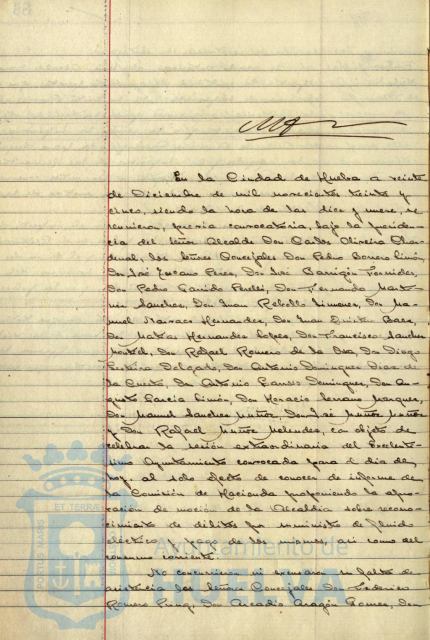 En la Ciudad de Huelva a veinte
de Diciembre de mil novecientos treinta y
cinco, siendo la hora de las diez y nueve, se
reunieron, previa convocatoria, bajo la presiden-
cia del Señor Alcalde Don Carlos Oliveira Char-
denal, los Señores Concejales Don Pedro Borrero Limón,
Don José Perez, Don José Barrigón Fornieles,
Don Pedro Garrido Perelló, Don Fernando Marti-
nez Sanchez, Don Juan Rebollo Jimenez, Don Ma-
nuel Narvaez Hernandez, Don Juan Quintero Baez,
Don Matías Hernandez Lopez, Don Francisco Sanchez
Don Rafael Romero de la Don Diego
Delgado, Don Antonio Dominguez Diaz de
la Cueto, Don Antonio Dominguez, Don Au-
gusto Garcia Limón, Don Horacio Serrano Marquez,
Don Manuel Sanchez Muñoz, Don José Muñoz Muñoz
y Don Rafael Muñoz Melendez, con objeto de
celebrar la sesión extraordinaria del Excelen-
tísimo Ayuntamiento convocada para el dia de
hoy al solo efecto de conocer de informe de
la Comisión de Hacienda proponiendo la apro-
vación de moción de la Alcaldia sobre recono-
cimiento de débitos por suministro de fluido
eléctrico y pago de los mismos, así como del
consumo corriente.
No concurrieron ni excusaron su falta de
asistencia los Señores Concejales Don Federico
Romero Don Arcadio Aragón Gomez, Don
PORTUS MARIS
ET TERRAE
Ayuntamiento de
HUELVA